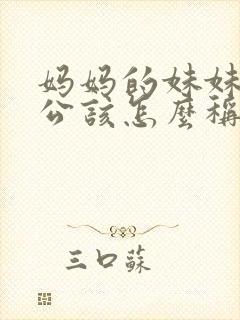 妈妈的妹妹
公該怎麼稱
三口蘇